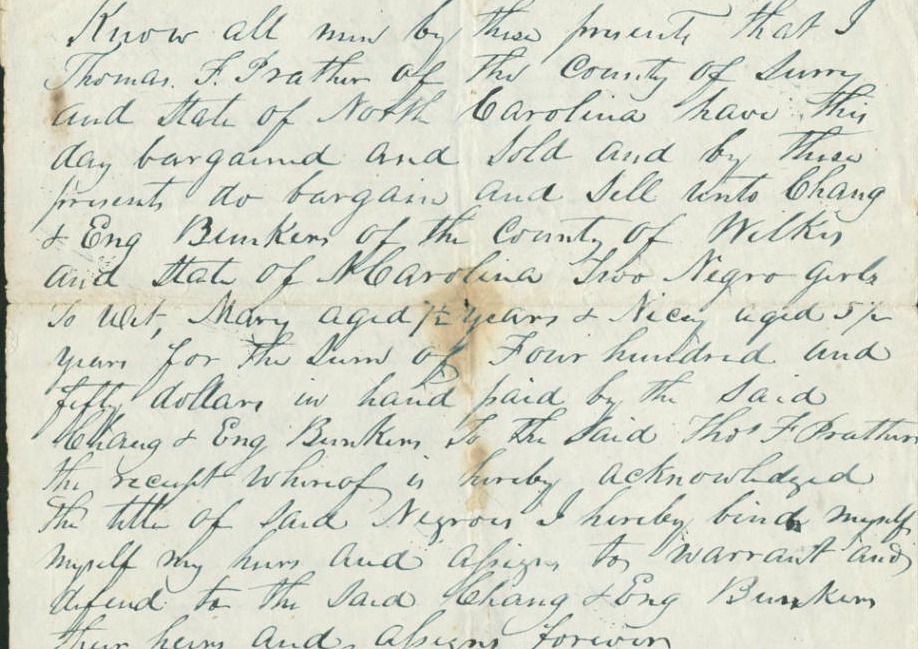 Know all men by these presents that I
Thomas F. Prather of the County of Surry
and State of North Carolina have this
day bargained and sold and by these
presents do bargain and sell unto Chang
& Eng Bunkers of the County of Wilkes
and State of N Carolina Two Negro girls
To Wit, Mary aged 7½ years & Nicey aged 5½
years for the sum of Four hundred and
fifty dollars in hand paid by the said
Chang & Eng Bunkers to the said Thos F Prather
the receipt whereof is hereby acknowledged
the title of said Negroes I hereby bind myself
myself my heirs and assigns to warrant and
defend to the said Chang & Eng Bunkers
their heirs and assigns forever